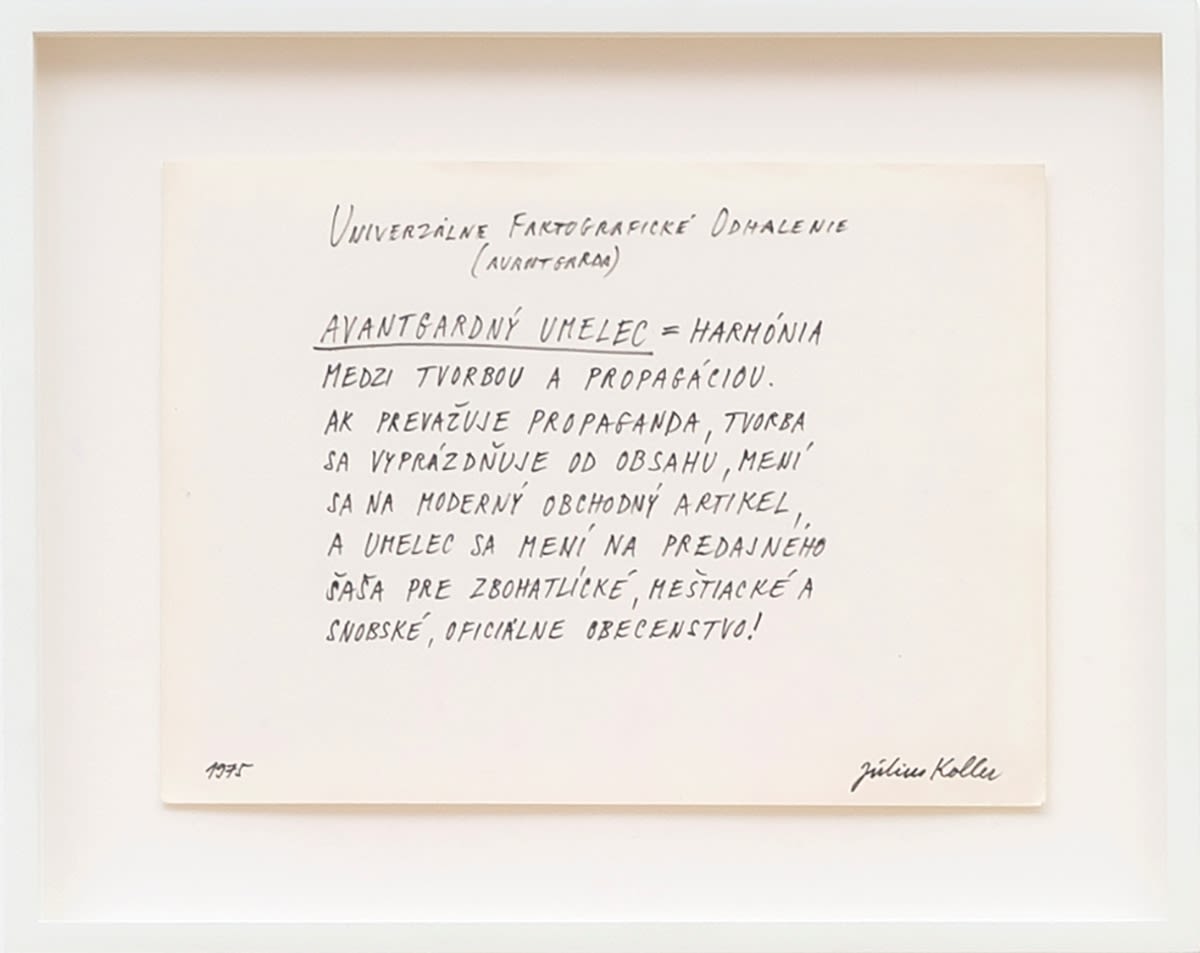 Univerzálne Faktografické Odhalenie
(avantgarda)
AVANTGARDNÝ UMELEC = HARMÓNIA
MEDZI TVORBOU A PROPAGÁCIOU.
AK PREVAŽUJE PROPAGANDA, TVORBA
SA VYPRÁZDŇUJE OD OBSAHU, MENÍ
SA NA MODERNÝ OBCHODNÝ ARTIKEL,
A UMELEC SA MENÍ NA PREDAJNÉHO
ŠAŠA PRE ZBOHATLÍCKÉ, MEŠTIACKÉ A
SNOBSKÉ, OFICIÁLNE OBECENSTVO!
1975
Július Koller